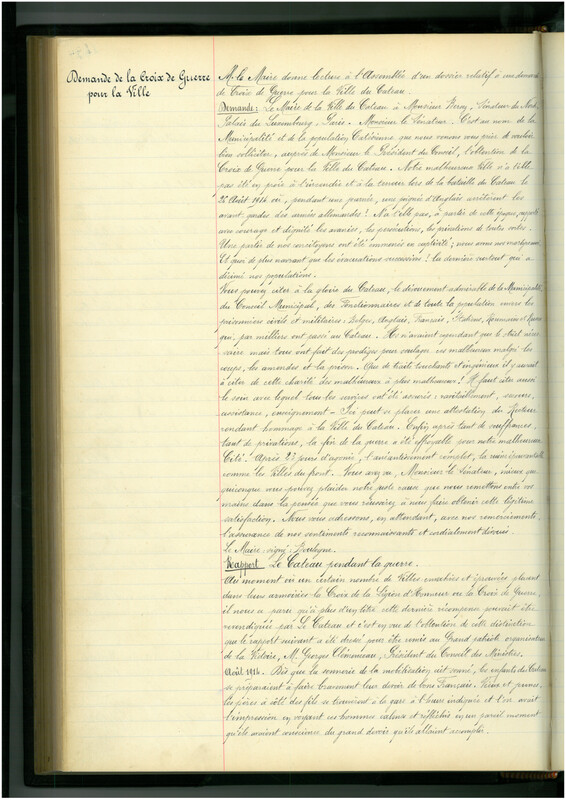 Demande de la Croix de Guerre
pour la Ville
M. le Maire donne lecture à l'Assemblée d'un dossier relatif à une demande
de Croix de Guerre pour la Ville du Cateau.
Demande : Le Maire de la Ville du Cateau à Monsieur Sénateur du Nord,
Palais du Luxembourg - Paris. Monsieur le Sénateur. C'est au nom de la
Municipalité et de la population Catésienne que nous venons vous prier de vouloir
bien solliciter, auprès de Monsieur le Président du Conseil, l'obtention de la
Croix de Guerre pour la Ville du Cateau. Notre malheureuse Ville n'a-t-elle
pas été en proie à l'incendie et à la terreur lors de la bataille du Cateau le
26 Août 1914 où, pendant une journée, une poignée d'Anglais arrêtèrent les
avant-gardes des armées allemandes ! N'a-t-elle pas, à partir de cette époque, supporté
avec courage et dignité les avanies, les persécutions, les privations de toutes sortes.
Une partie de nos concitoyens ont été emmenés en captivité ; nous avons nos martyrs
Et quoi de plus navrant que les évacuations successives ! la dernière surtout qui a
décimé nos populations.
Vous pouvez citer à la gloire du Cateau, le dévouement admirable de la Municipalité,
du Conseil Municipal, des Fonctionnaires et de toute la population envers les
prisonniers civils et militaires : Belges, Anglais, Français, Italiens, Roumains et Russes
qui, par milliers ont passé au Cateau. Ils n'avaient cependant que le strict néces-
saire mais tous ont fait des prodiges pour soulager ces malheureux malgré les
coups, les amendes et la prison. Que de traits touchants et ingénieux il y aurait
à citer de cette charité des malheureux à plus malheureux ! Il faut citer aussi
le soin avec lequel tous les services ont été assurés : ravitaillement, secours,
assistance, enseignement - Ici peut se placer une attestation du Recteur
rendant hommage à la Ville du Cateau. Enfin, après tant de souffrances,
tant de privations, la fin de la guerre a été effroyable pour notre malheureuse
Cité ! Après 23 jours d'agonie, l'anéantissement complet, la ruine épouvantable
comme les Villes du front. Vous avez vu, Monsieur le Sénateur, mieux que
quiconque vous pouvez plaider notre juste cause que nous remettons entre vos
mains dans la pensée que vous réussirez à nous faire obtenir cette légitime
satisfaction. Nous vous adressons, en attendant, avec nos remerciements,
l'assurance de nos sentiments reconnaissants et cordialement dévoués.
Le Maire, signé :
Rapport. Le Cateau pendant la guerre.
Au moment où un certain nombre de Villes envahies et éprouvées placent
dans leurs armoiries la Croix de la Légion d'Honneur ou la Croix de Guerre,
il nous a paru qu'à plus d'un titre cette dernière récompense pouvait être
revendiquée par Le Cateau et c'est en vue de l'obtention de cette distinction
que le rapport suivant a été dressé pour être remis au Grand patriote organisateur
de la Victoire, M. Georges Clémenceau, Président du Conseil des Ministres.
Août 1914. Dès que la sonnerie de la mobilisation eut sonné, les enfants du Cateau
se préparaient à faire crânement leur devoir de bons Français. Vieux et jeunes,
les pères à côté des fils se trouvèrent à la gare à l'heure indiquée et l'on avait
l'impression en voyant ces hommes calmes et réfléchis en un pareil moment
qu'ils avaient conscience du grand devoir qu'ils allaient accomplir.